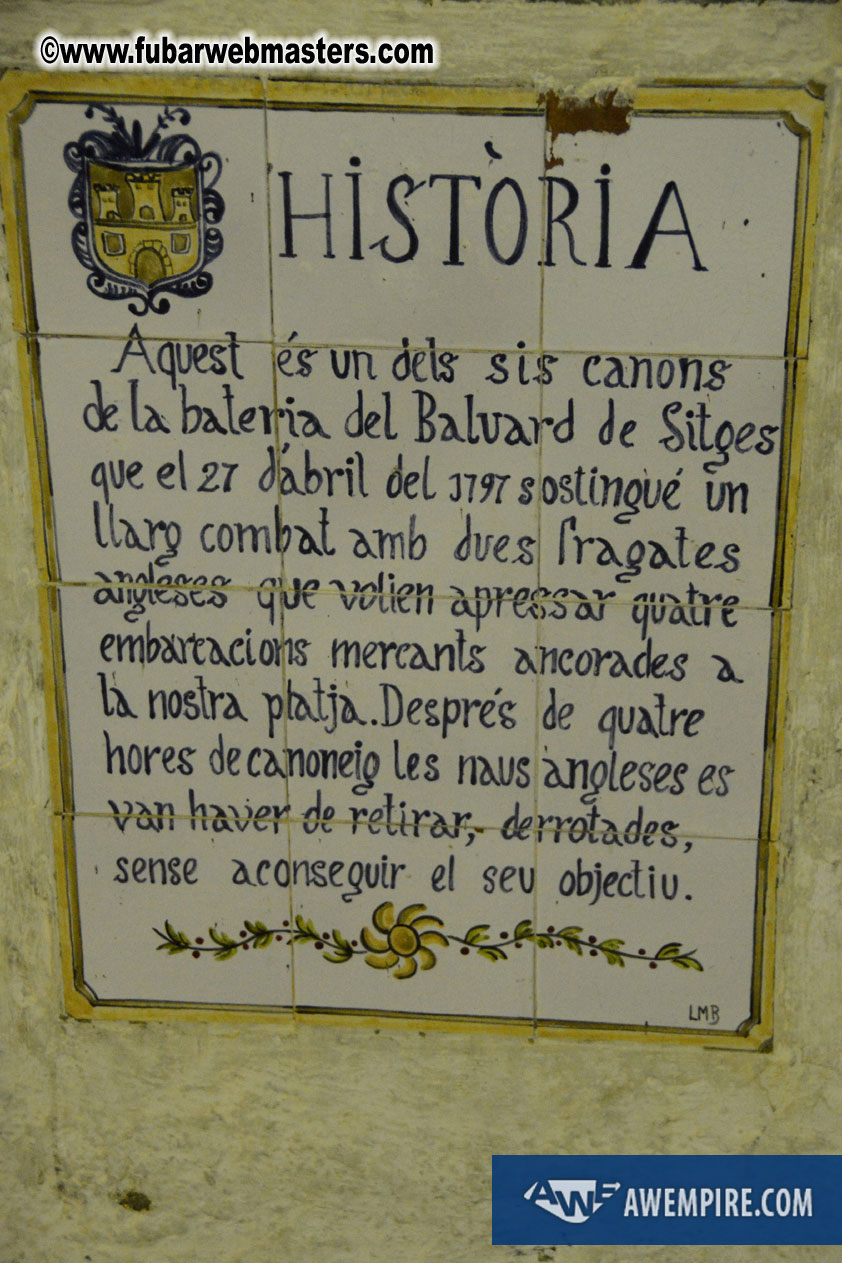 ©www.fubarwebmasters.com
HiSTÒRiA
Aquest és un dels sis canons
de la bateria del Baluard de Sitges
que el 27 d'abril del 1797 sostingué un
llarg combat amb dues fragates
angleses que volien apressar quatre
embarcacions mercants ancorades a
la nostra platja. Després de quatre
hores de canoneig les naus angleses es
van haver de retirar, derrotades,
sense aconseguir el seu objectiu.
LMB
AWE AWEMPIRE.COM